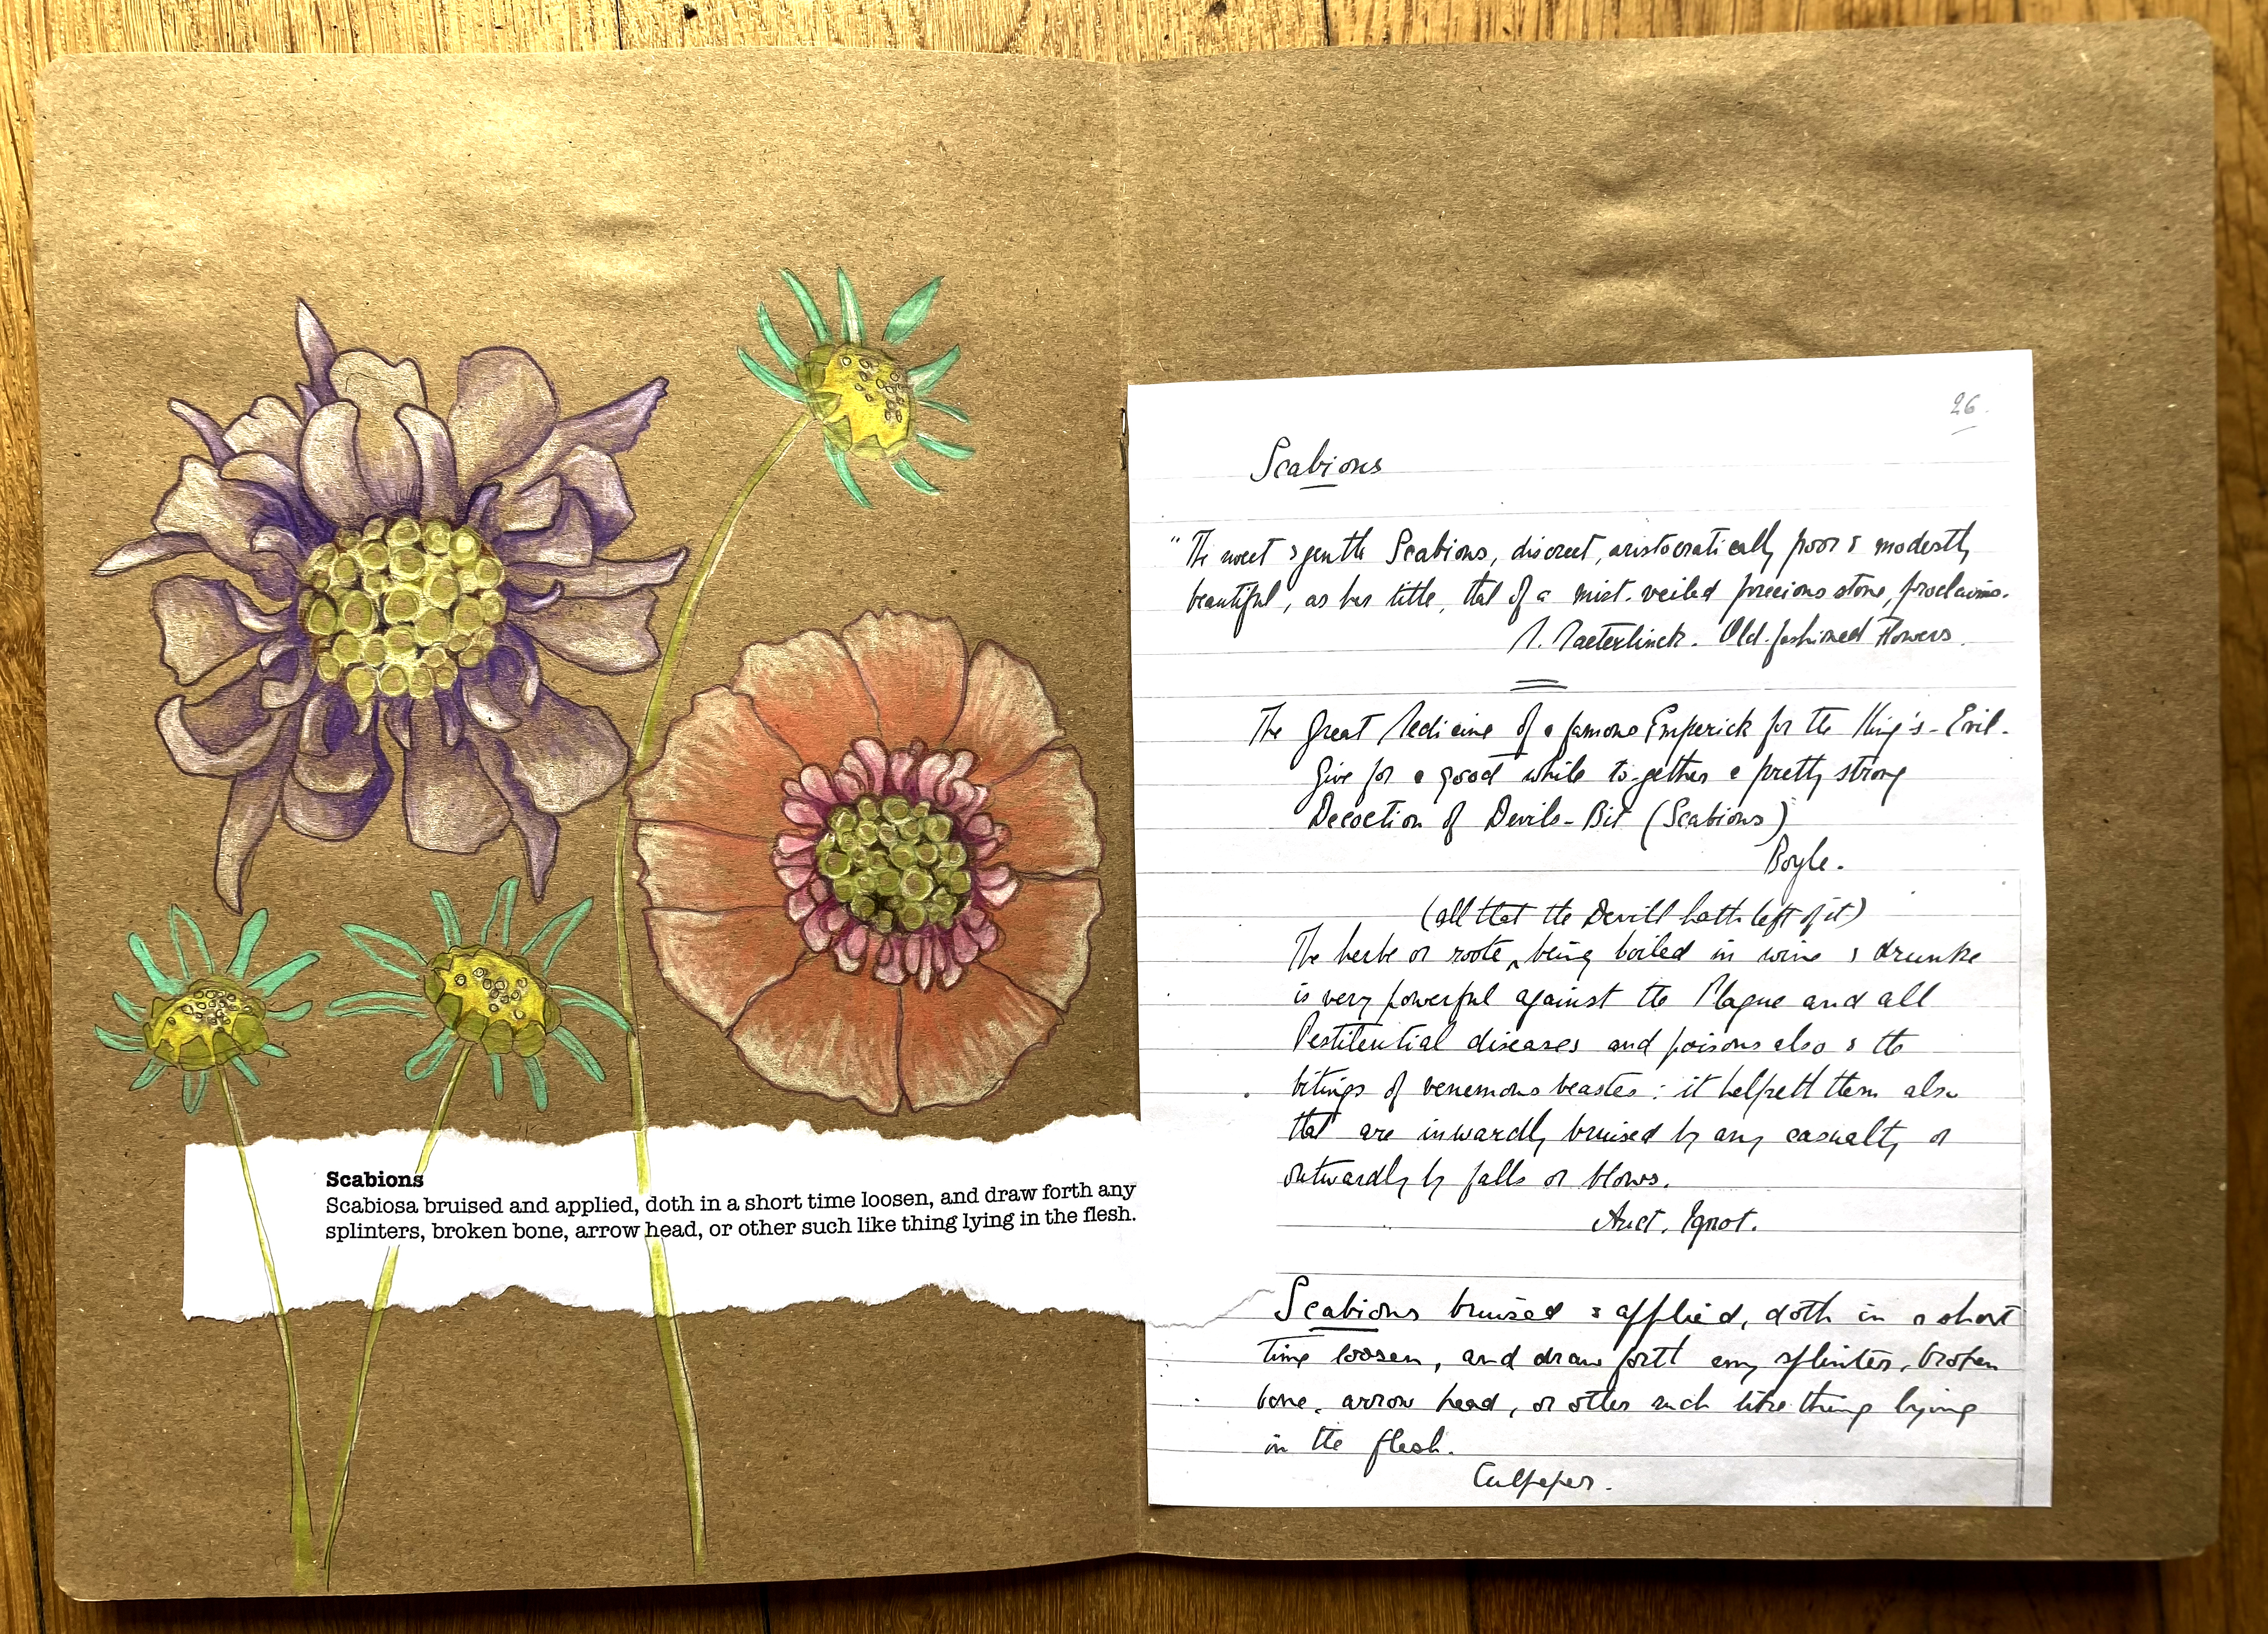 Scabions
Scabiosa bruised and applied, doth in a short time loosen, and draw forth any
splinters, broken bone, arrow head, or other such like thing lying in the flesh.
26.
Scabious
"The sweet & gentle Scabious, discreet, aristocratically poor & modestly
beautiful, as her title, that of a mist-veiled precious stone, proclaims.
M. Maeterlinck. Old-fashioned Flowers.
The Great Medicine of a famous Emperick for the King's-Evil.
Give for a good while to-gether a pretty strong
Decoction of Devils-Bit (Scabious)
Boyle.
(all that the Devill hath left of it)
The herbe or roote ‸ being boiled in wine & drunke
is very powerful against the Plague and all
Pestilential diseases and poisons also & the
bitings of venemous beastes: it helpeth them also
that are inwardly bruised by any casualty or
outwardly by falls or blows.
Auct. Ignot.
Scabious bruised & applied, doth in a short
time loosen, and draw forth any splinter, broken
bone, arrow head, or other such like thing lying
in the flesh.
Culpeper.